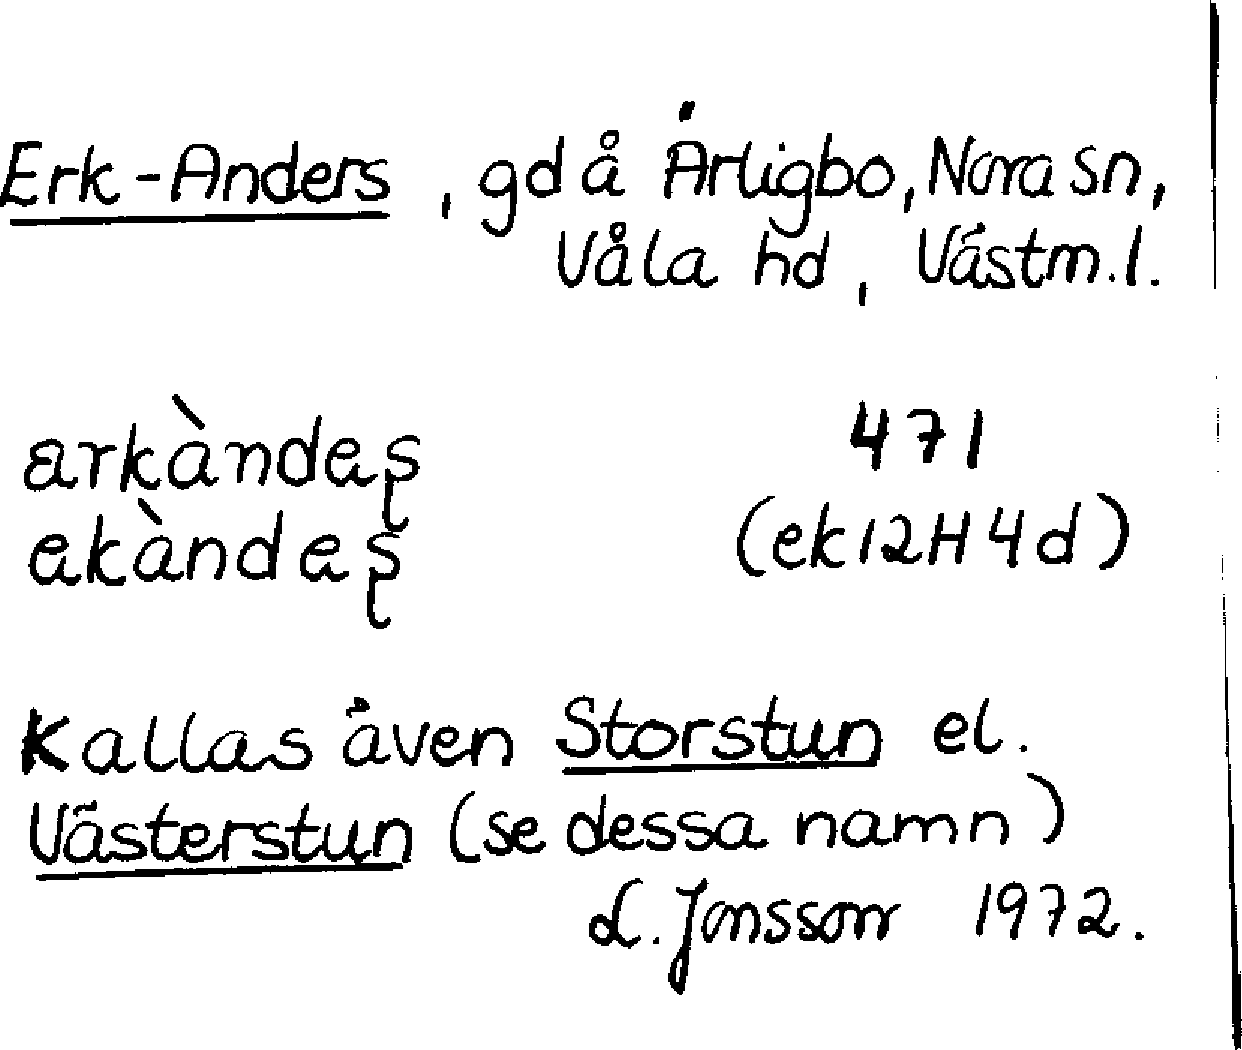 Erk-Anders, gd å Ärligbo, Nora sn,
Våla hd, Västm.l.
arkàndeș 471
ekàndeș (ek 12H4d)
Kallas även Storstun el.
Västerstun (se dessa namn)
L. Jonsson 1972.